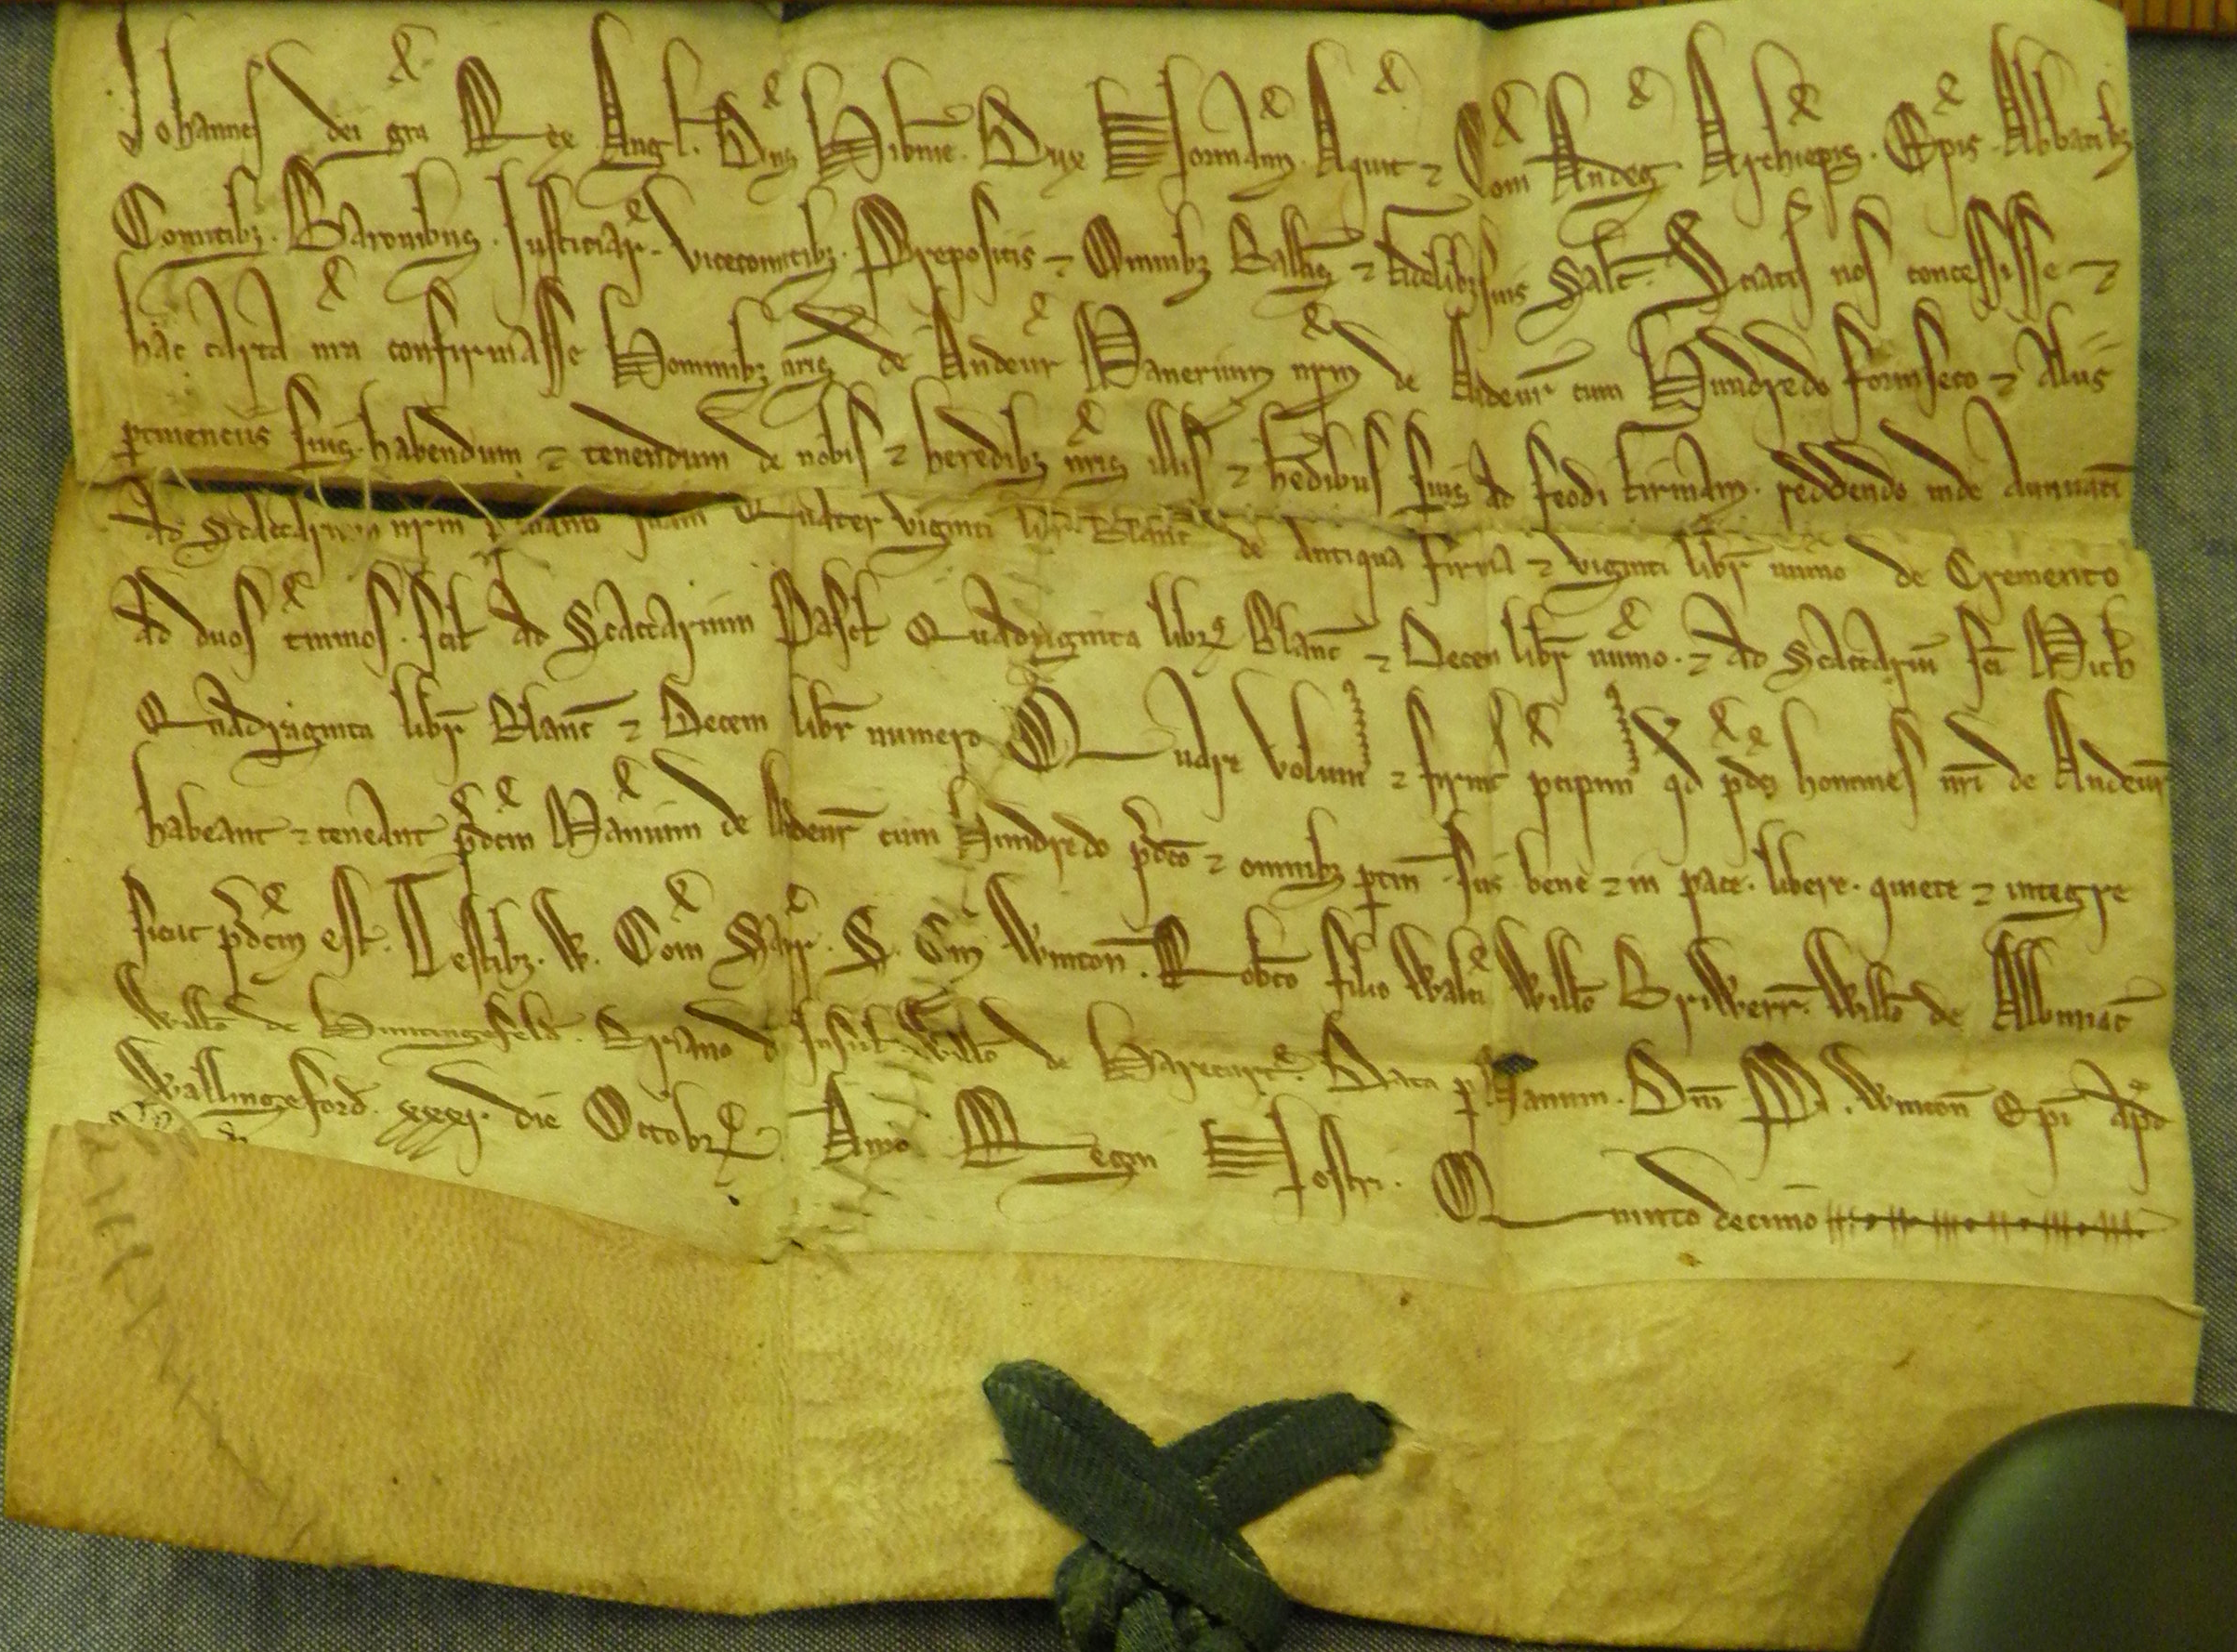 Johannes dei gra Rex Angl. Dns Hibnie. Dux Normann. Aquit ⁊ Com Andeg. Archiepis. Epis. Abbatibz
Comitibz. Baronibus. Justiciar. vicecomitibz. Prepositis ⁊ Omnibz Ballis ⁊ fidelibz suis Salt. Sciatis nos concessisse ⁊
hac carta nra confirmasse Hominibz nris de Andeur Manerium nrm de Andeur cum Hundredo forinseco ⁊ Aliis
ptinenciis suis. habendum ⁊ tenendum de nobis ⁊ heredibz nris illis ⁊ hedibus suis ad feodi firmam. reddendo inde Annuati
Ad Scaccarium nrm Quater viginti libr Blanc de Antiqua firma ⁊ viginti libr numo de Cremento
Ad duos tminos. scil Ad Scaccarium Pasch Quadraginta libr Blanc ⁊ Decem libr numo. ⁊ Ad Scaccarium sci Mich
Quadraginta libr Blanc ⁊ Decem libr numero Quare volum ⁊ firmit pcipim qd pdci homines nri de Andeur
habeant ⁊ teneant pdcm Manium de Andeur cum Hundredo pdco ⁊ omnibz ptin suis bene ⁊ in pace. libere. quiete ⁊ integre
sicut pdcm est. Testibz. W. Com Sarr. S. Com Winton. Robto filio Walti Willo Briwerr. Willo de Albiniac
Willo de Huntingefeld. Briano de Insul. Willo de Harecurt. Data p Manum. Dni P. Winton Epi Apd
Wallingeford. xxxj. die Octobr. Anno Regni Nostri. Quinto decimo